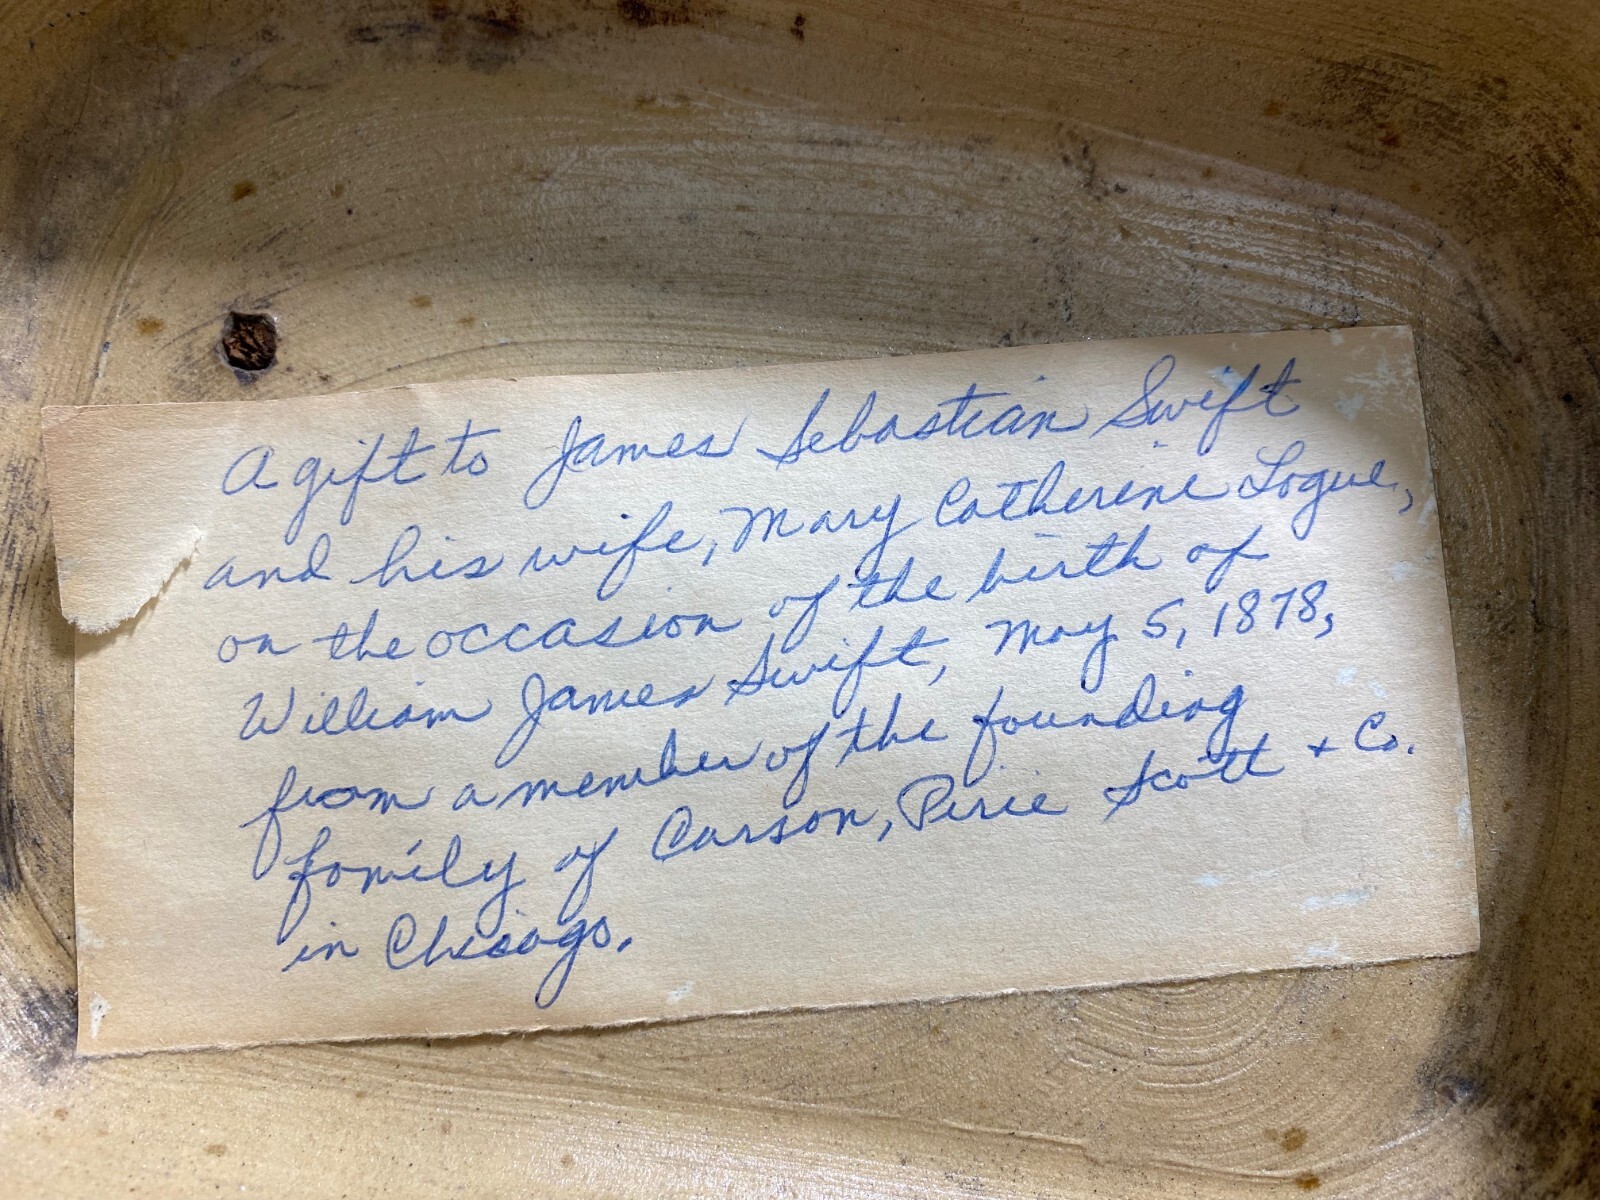 A gift to James Sebastian Swift
and his wife, Mary Catherine Logue,
on the occasion of the birth of
William James Swift, May 5, 1878,
from a member of the founding
family of Carson, Pirie Scott + Co.
in Chicago.